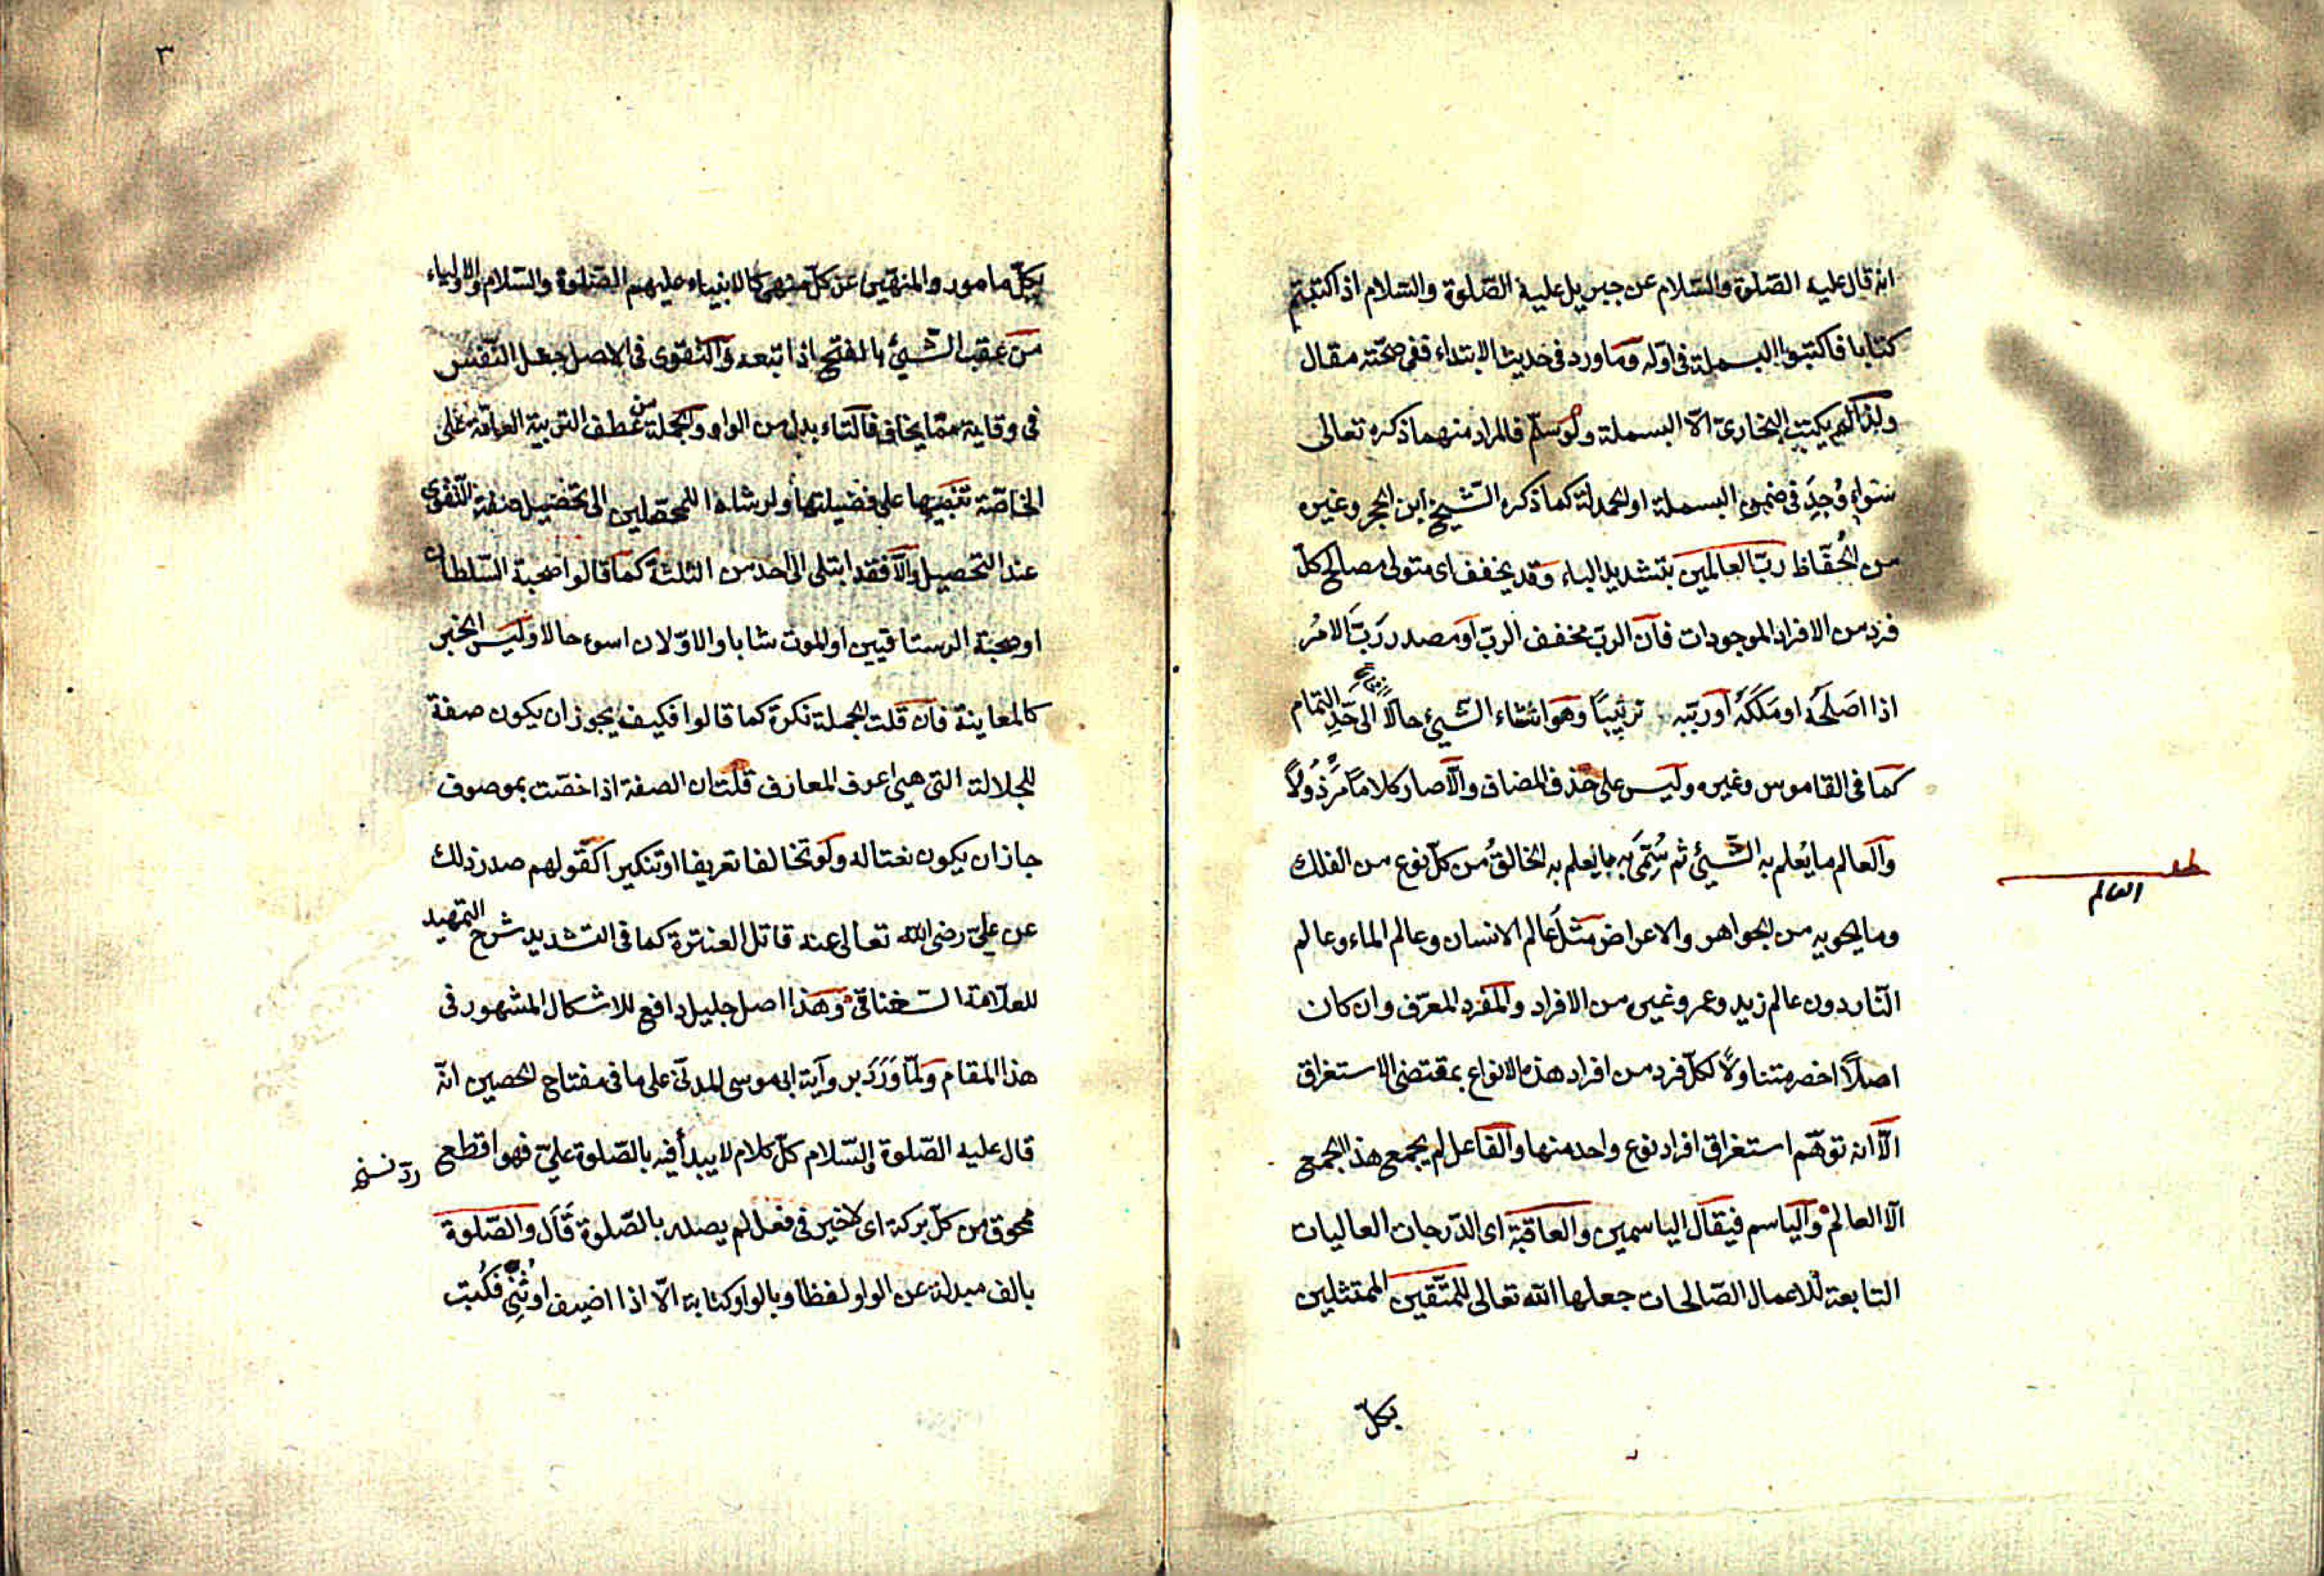 انه قال عليه الصّلوة والسّلام عن جبريل عليه الصّلوة والسّلام اذا كتبتم
كتابا فاكتبوا البسملة فى اوّله وما ورد فى حديث الابتداء ففى صحّته مقال
ولذا لم يكتب البخارىّ الّا البسملة ولو سلّم فالمراد منهما ذكره تعالى
سواء وُجِدَ فى ضمن البسملة او الحمدلة كما ذكره الشّيخ ابن الحجر وغيره
من الحُفّاظ ربّ العالمين بتشديد الباء وقد يخفف اى متولى مصالح كلّ
فرد من الافراد الموجودات فانّ الرب مخفف الربّ او مصدر رَبَّ الامُر
اذا اصَلَحَه او مَلَكَهُ او ربّبه تربيبًا وهو انشاء الشّيئ حالًا الى حَدِّ التمام
كما فى القاموس وغيره وليس على حذف المضاف والّا صار كلامًا مَرْذُولًا
والعالم ما يُعلم به الشّيئ ثم سُمِّىَ به ما يعلم به الخالقُ من كلّ نوع من الفلك
وما يحويه من الجواهر والاعراض مثل عالم الانسان وعالم الماء وعالم
النّار دون عالم زيد وعمرو غيره من الافراد والمفرد المعرّف وان كان
اصلًا اخصر متناولًا لكلّ فرد من افراد هذه الانواع بمقتضى الاستغراق
الّا انه توهّم استغراق افراد نوع واحد منها والفاعل لم يجمع هذا الجمع
الّا العالم والياسم فيقال الياسمين والعاقبة اى الدّرجات العاليات
التابعة للاعمال الصّالحات جعلها الله تعالى للمتّقين الممتثلين
بكلّ
العالم
٣
بكلّ مامور والمنهّين عن كلّ منهى كالانبياء عليهم الصّلوة والسّلام والاولياء
من عقب الشّيئ بالفتح اذا تبعه والتقوى فى الاصل جعل النّفس
فى وقاية ممّا يخاف فالتاء بدل من الواو والجملة من عطف التربية العامّة على
الخاصّة تنبيها على فضيلتها وارشادا للمحصّلين الى تحصيل صفة التّقوى
عند التحصيل والّا فقد ابتلى الى احد من الثلثة كما قالوا صحبة السّلطان
او صحبة الرستاقيين او الموت شابا والاوّلان اسوء حالا وليس الخبر
كالمعاينة فان قلت الجملة نكرة كما قالوا فكيف يجوز ان يكون صفة
للجلالة التى هى اعرف المعارف قلت ان الصفة اذا خصّت بموصوف
جاز ان يكون نعتا له ولو تخالفا تعريفا او تنكيرا كقولهم صدر ذلك
عن علىّ رضى الله تعالى عنه قاتل العنترة كما فى التشديد شرح التمهيد
للعلّامة السغناقى وهذا اصل جليل دافع للاشكال المشهور فى
هذا المقام ولمّا وَرَدَ برواية ابى موسى المدنّى على ما فى مفتاح الحصين انّه
قال عليه الصّلوة والسّلام كلّ كلام لا يبدأ فيه بالصّلوة علىّ فهو اقطع
ممحوق من كلّ بركة اى لا خير فى فعل لم يصله بالصّلوة قَالَ والصّلوة
بالف مبدلة عن الواو لفظا وبالواو كتابة الّا اذا اضيف او ثُنِّىَ فكُتبت